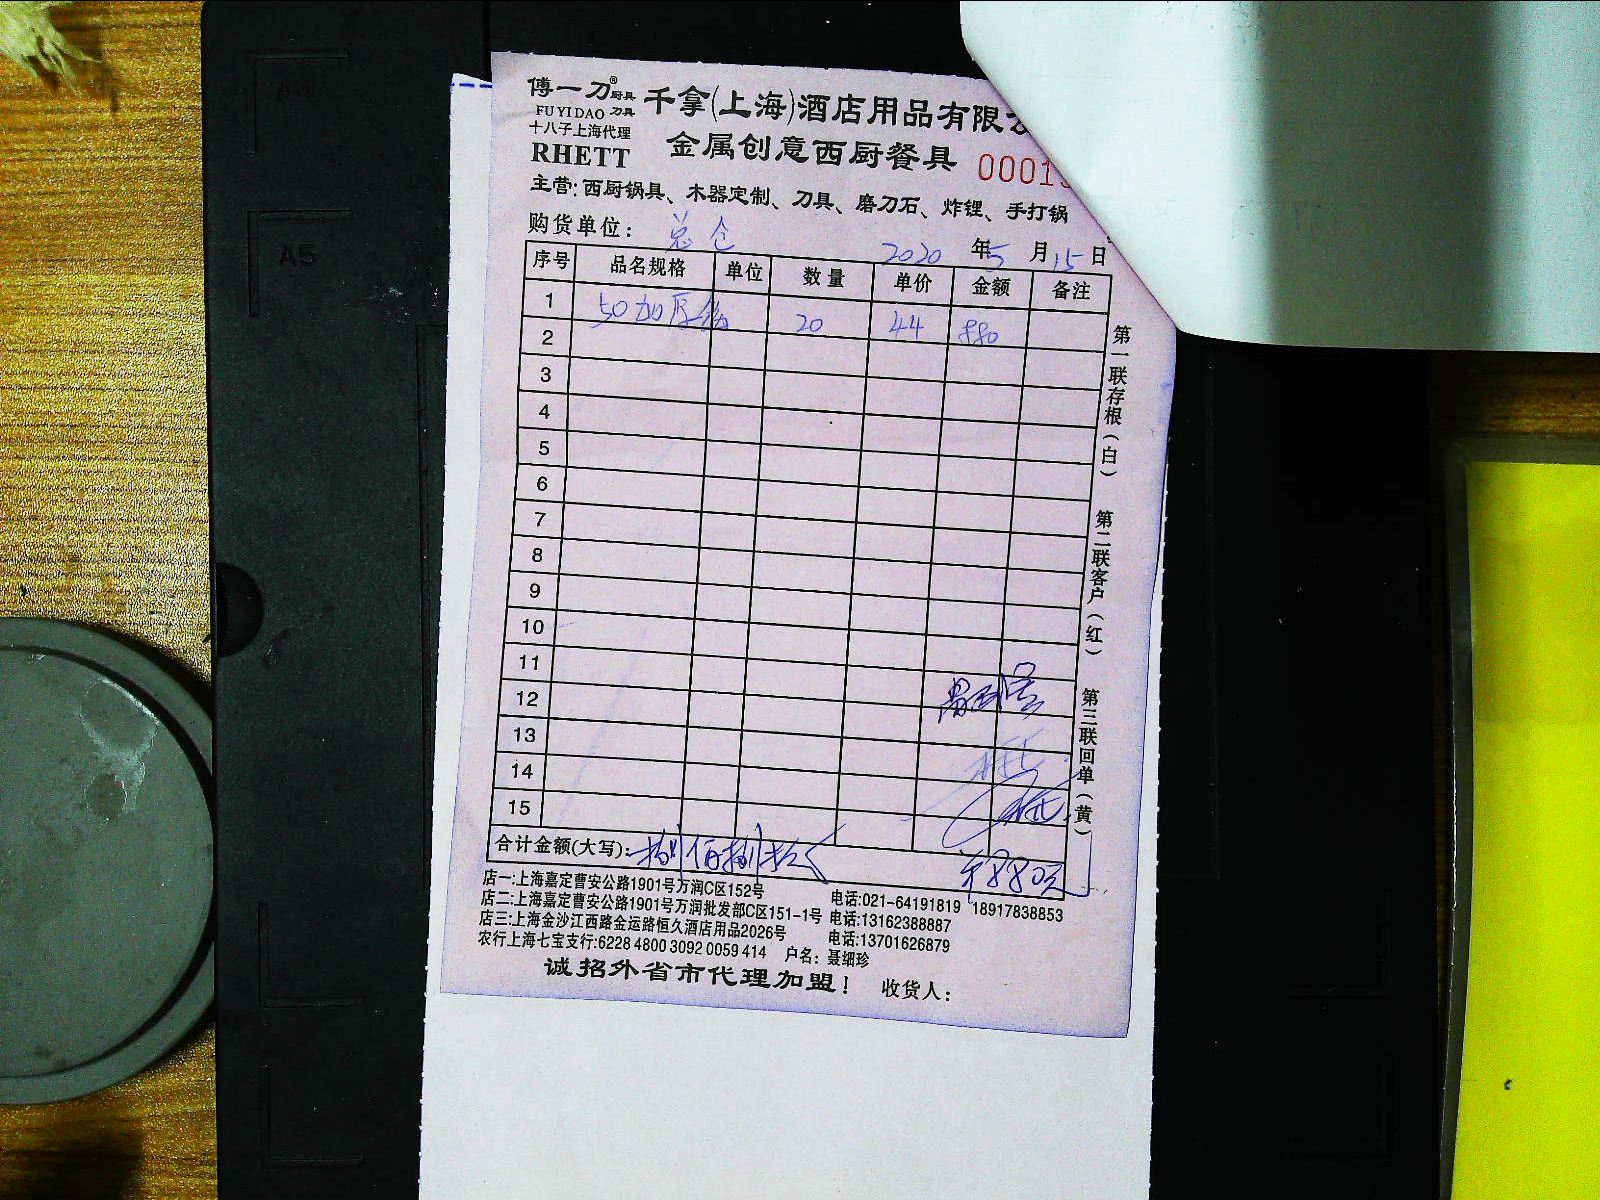 傅一刀® 厨具 刀具
FU YI DAO
十八子上海代理
RHETT
千拿(上海)酒店用品有限
金属创意西厨餐具
0001
主营:西厨锅具、木器定制、刀具、磨刀石、炸锂、手打锅
购货单位: 总仓
2020 年 5 月 15 日
序号 品名规格 单位 数量 单价 金额 备注
1 50加厚 20 44 880
2
3
4
5
6
7
8
9
10
11
12
13
14
15
合计金额(大写): 捌佰捌拾 ¥880元
第一联存根(白) 第二联客户(红) 第三联回单(黄)
店一:上海嘉定曹安公路1901号万润C区152号 电话:021-64191819 18917838853
店二:上海嘉定曹安公路1901号万润批发部C区151-1号 电话:13162388887
店三:上海金沙江西路金运路恒久酒店用品2026号 电话:13701626879
农行上海七宝支行:6228 4800 3092 0059 414 户名: 聂细珍
诚招外省市代理加盟! 收货人:
A4
A5